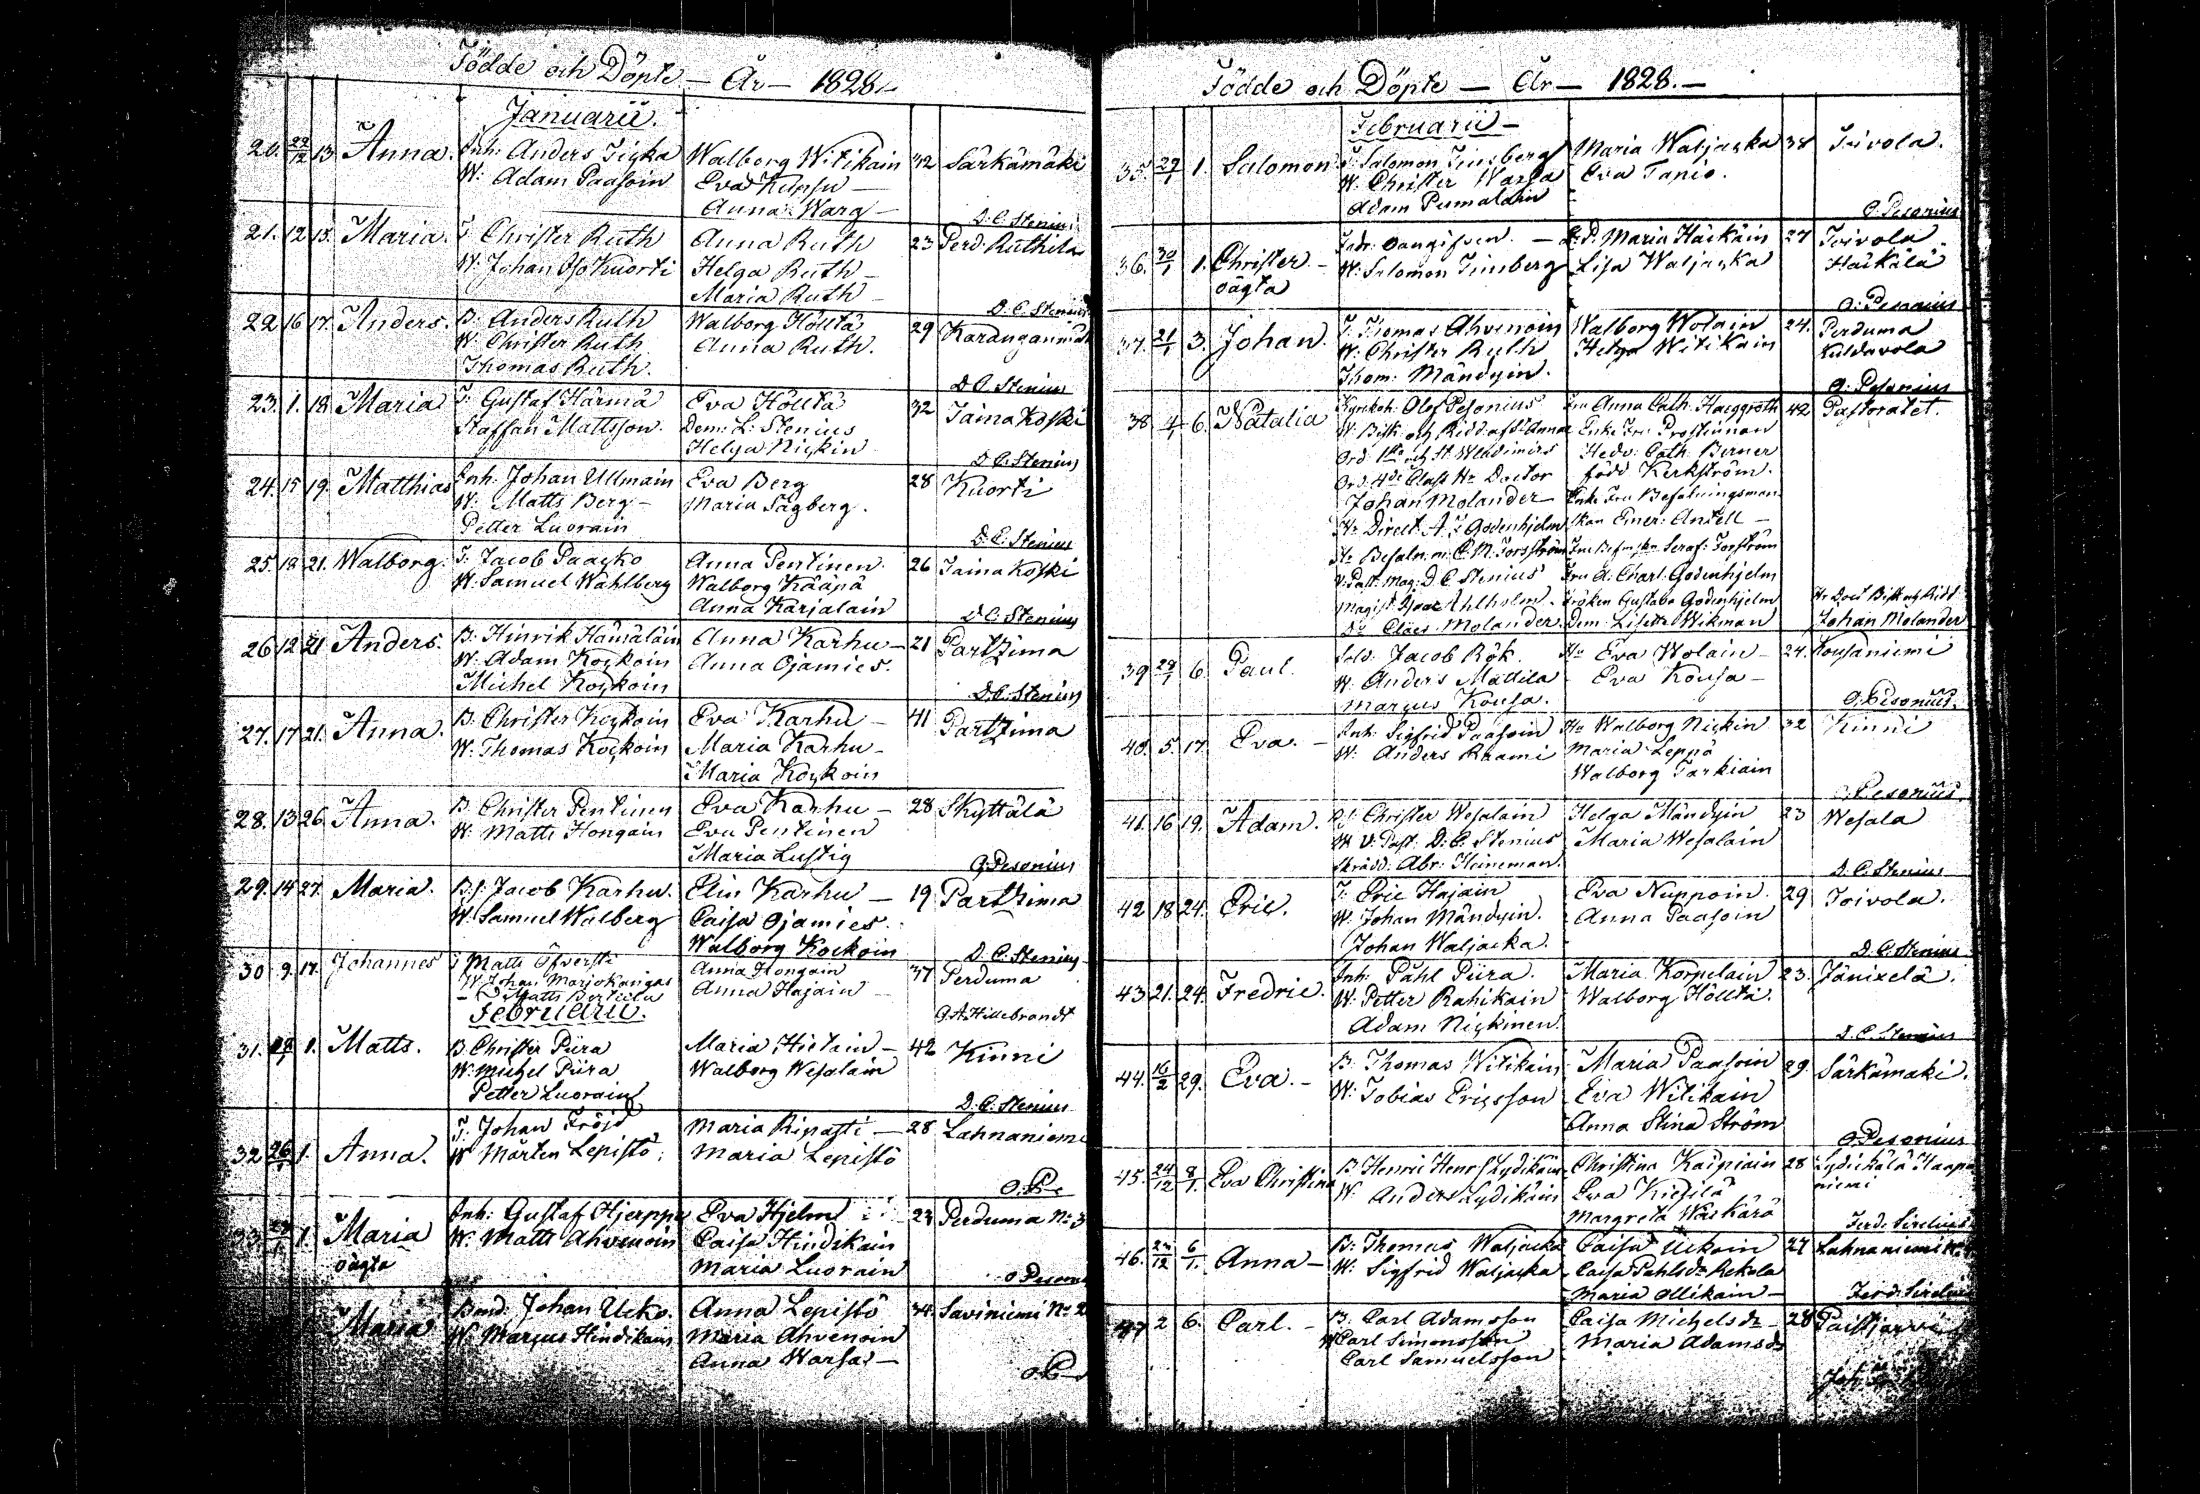 Födde och Döpte — År — 1828.
Januarii.
20. 29/12 13. Anna. Inh: Anders Ticka Walborg Witikain 32 Särkämäki
W: Adam Paasoin Eva Kupsu —
Anna Warg — D. C. Stenius
21. 12 15. Maria. T. Christer Ruth Anna Ruth 23 Perd: Ruthila
W: Johan Kuorti Helga Ruth —
Maria Ruth — D. C. Stenius
22 16 17. Anders. B: Anders Ruth Walborg Hölltä 29 Karanganmäki
W: Christer Ruth Anna Ruth.
Thomas Ruth. D C. Stenius
23. 1. 18. Maria T: Gustaf Härmä Eva Hölltä 32 Taina Koski
Staffan Mattsson. Dem: L: Stenius
Helga Nickin D. C. Stenius
24. 15 19. Matthias Inh: Johan Ullmain Eva Berg 28 Kuorti
W: Matts Berg — Maria Tägberg.
Petter Luorain D. C. Stenius
25. 18 21. Walborg. T. Jacob Paacko Anna Pentinen. 26 Taina Koski
W. Samuel Wahlberg Walborg Kääpä
Anna Karjalain D. C. Stenius
26 12 21 Anders. B: Hinrik Hämäläin Anna Karhu — 21 Partzima
W: Adam Kockoin Anna Ojamies.
Michel Kockoin D. C. Stenius
27. 17 21. Anna. B: Christer Kockoin Eva Karhu — 41 Partzima
W: Thomas Kockoin Maria Karhu —
Maria Kockoin
28. 13 26. Anna. B Christer Pentinen Eva Karhu — 28 Skyttälä
W: Matts Hongain Eva Pentinen
Maria Lustig O. Pesonius
29. 14 27. Maria. B.f. Jacob Karhu. Elin Karhu — 19 Partzima
W: Samuel Walberg Caisa Ojamies.
Walborg Kockoin D. C. Stenius
30 9. 17. Johannes T Matts Öfversti Anna Hongain 37 Perduma
W. Johan Marjokangas Anna Hajain
Matts Perttila
Februarii. G. A. Hillebrandt
31. 1. Matts. B Christer Piira Maria Hietain — 42 Kinni
W: Michel Piira Walborg Wesalain
Petter Luorain D. C. Stenius
32 26/1 1. Anna. T. Johan Fröjd Maria Ripatti — 28 Lahnaniemi
W Mårten Lepistö. Maria Lepistö
O. P—
1. Maria Inh: Gustaf Hjerppe Eva Hjelm 23 Perduma No 3
oägta W: Matts Ahvenoin Caisa Hindikain
Maria Luorain O Pesonius
Maria Bond: Johan Ucko. Anna Lepistö 34. Saviniemi No 2
W: Marcus Hindikain Maria Ahvenoin
Anna Warsa — O. P—
Födde och Döpte — År — 1828. —
Februarii —
35. 27/1 1. Salomon T. Salomon Timberg Maria Waljacka 38 Toivola.
W: Christer Warsa Eva Tanio.
Adam Pumalain O. Pesonius
36. 30/1 1. Christer — Fadr: oangifven. — Maria Häckäin 27 Toivola
oägta W: Salomon Timberg Lisa Waljacka Häckälä
O. Pesonius
37. 21/1 3. Johan. T: Thomas Ahvenoin Walborg Wolain 24. Perduma
W: Christer Ruth Helga Witikain Kuldavola
Thom: Mändyin. O. Pesonius
38 4/1 6. Natalia Kyrkoh: Olof Pesonius Fru Anna Cath: Haeggroth 42 Pastoratet.
W: Bisk: och Ridd: af St. Annæ Enke Fru Prostinnan
Ord. 1sta och St. Wladimirs Hedv: Cath: Berner
Ord. 4de Class Hr Doctor född Kerkström.
Johan Molander — Enke Fru Befalningsman
Hr Direct. A. Godenhjelm skan Emer: Antell —
Hr Befaln: m: C. M. Forsström Fru Befmskn Seraf: Forström
V: Past: Mag: D. C. Stenius Fru A: Charl: Godenhjelm
Magist: Isaac Ahlholm — Fröken Gustava Godenhjelm Hr Doct Bisk och Ridd
Do Claes Molander. Dem: Lisette Wikman Johan Molander
39 28/1 6. Paul. Sold: Jacob Rök. Hu Eva Wolain — 24. Kousaniemi
W: Anders Mattila Eva Kousa —
Marcus Kousa. O. Pesonius.
40. 5. 17. Eva. — Inh: Sigfrid Paasoin Hu Walborg Nickin 32 Kinni
W: Anders Raami Maria Leppä
Walborg Tarkiain O. Pesonius
41. 16 19. Adam. Christer Wesalain Helga Mändyin 23 Wesala
W V: Past: D: C. Stenius Maria Wesalain
Skrädd: Abr: Heineman. D. C. Stenius
42 18 24. Eric. T. Eric Hajain Eva Nuppoin. 29 Toivola.
W. Johan Mändyin. Anna Paasoin
Johan Waljacka. D. C. Stenius
43 21. 24. Fredric. Inh: Påhl Piira. Maria Korpelain 23. Jänixelä.
W: Petter Rahikain Walborg Hölltä.
Adam Nickinen. D. C. Stenius
44. 16/2 29. Eva. — B. Thomas Witikain Maria Paasoin 29. Särkämäki.
W: Tobias Ericsson Eva Witikain
Anna Stina Ström O. Pesonius
45. 24/12 8/1. Eva Christina B Henric Henrs: Lydikäin Christina Kaipiain 28 Lydickälä Haapa
W: Anders Lydikäin Eva Kiesilä niemi
Margreta Wäskärä Ferd: Sirelius
46. 27/12 6/1. Anna — B: Thomas Waljacka Caisa Uckoin 27 Lahnaniemi
W: Sigfrid Waljacka Caisa Pahlsdr Rekola
Maria Ollikain — Ferd: Sirelius
47 2 6. Carl. — B. Carl Adamsson Caisa Michelsdr — 28 Paistjärvi
W Carl Simonsson Maria Adamsdr
Carl Samuelsson